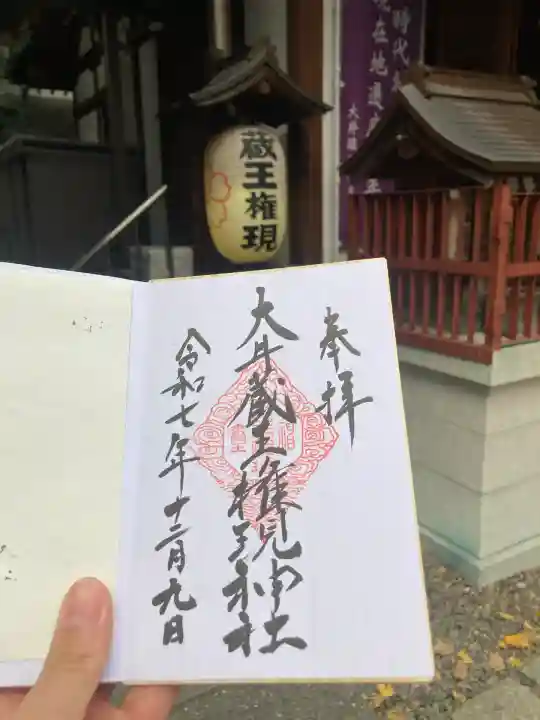 奉拝
大井蔵王権現神社
令和七年十二月九日
蔵王権現
時代
現在地
大井蔵王